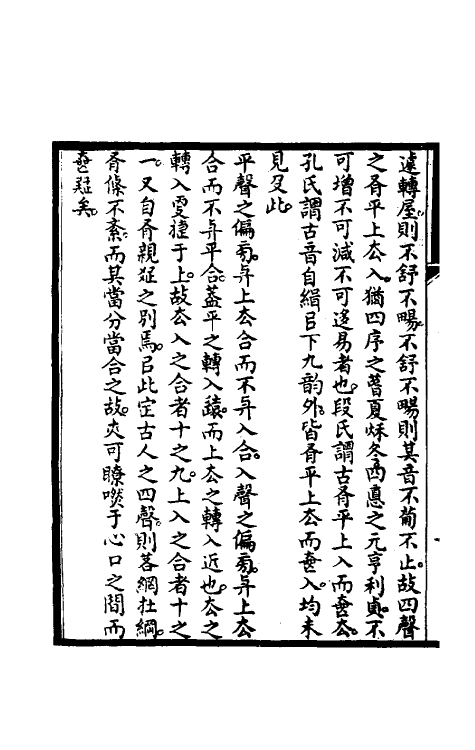 遠轉屋則不舒不暢不舒不暢則其音不葡不止故四聲
之㞷平上厺入猶四序之萅夏秌冬𠧧悳之元亨利貞不
可增不可減不可迻易者也段氏謂古㞷平上入而𣞤厺
孔氏謂古音自緝㠯下九韵外皆㞷平上厺而𣞤入均未
見及此
平聲之偏旁與上厺合而不與入合入聲之偏旁與上厺
合而不與平合葢平之轉入遠而上厺之轉入近也厺之
轉入更捷于上故厺入之合者十之九上入之合者十之
一又自㞷親疑之別焉㠯此定古人之四聲則若網在綱
㞷條不紊而其當分當合之故夾可瞭然于心口之閒而
𣞤疑矣